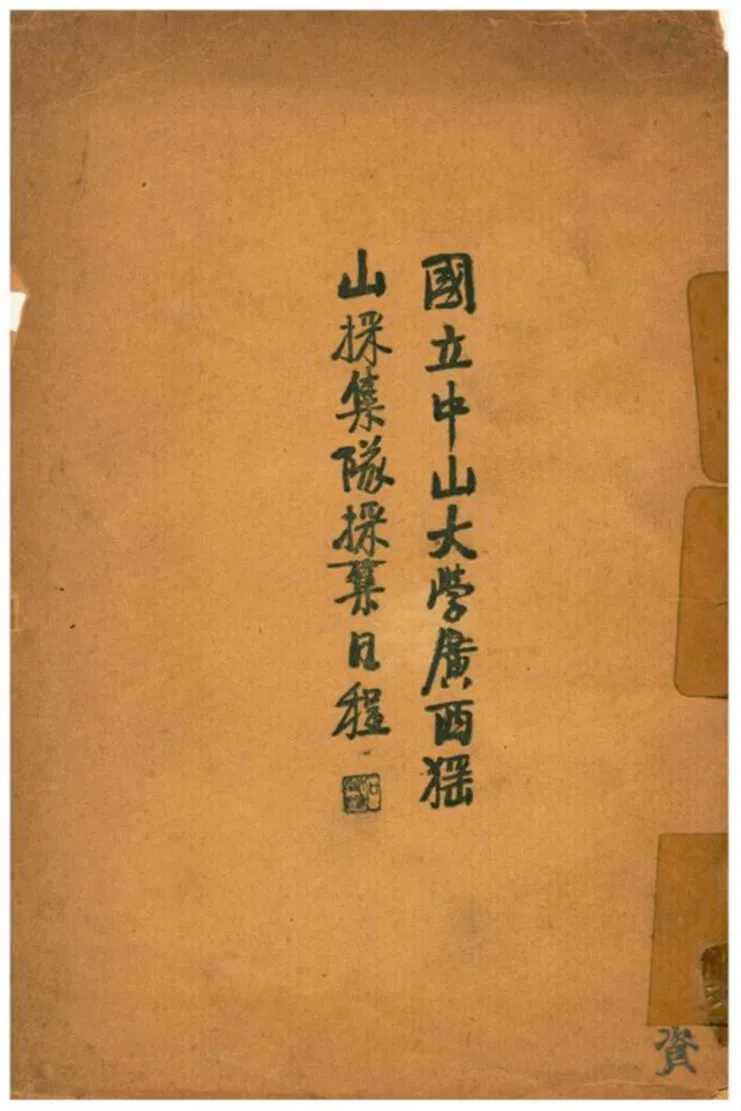 國立中山大学廣西猺
山採集隊採集日程
資